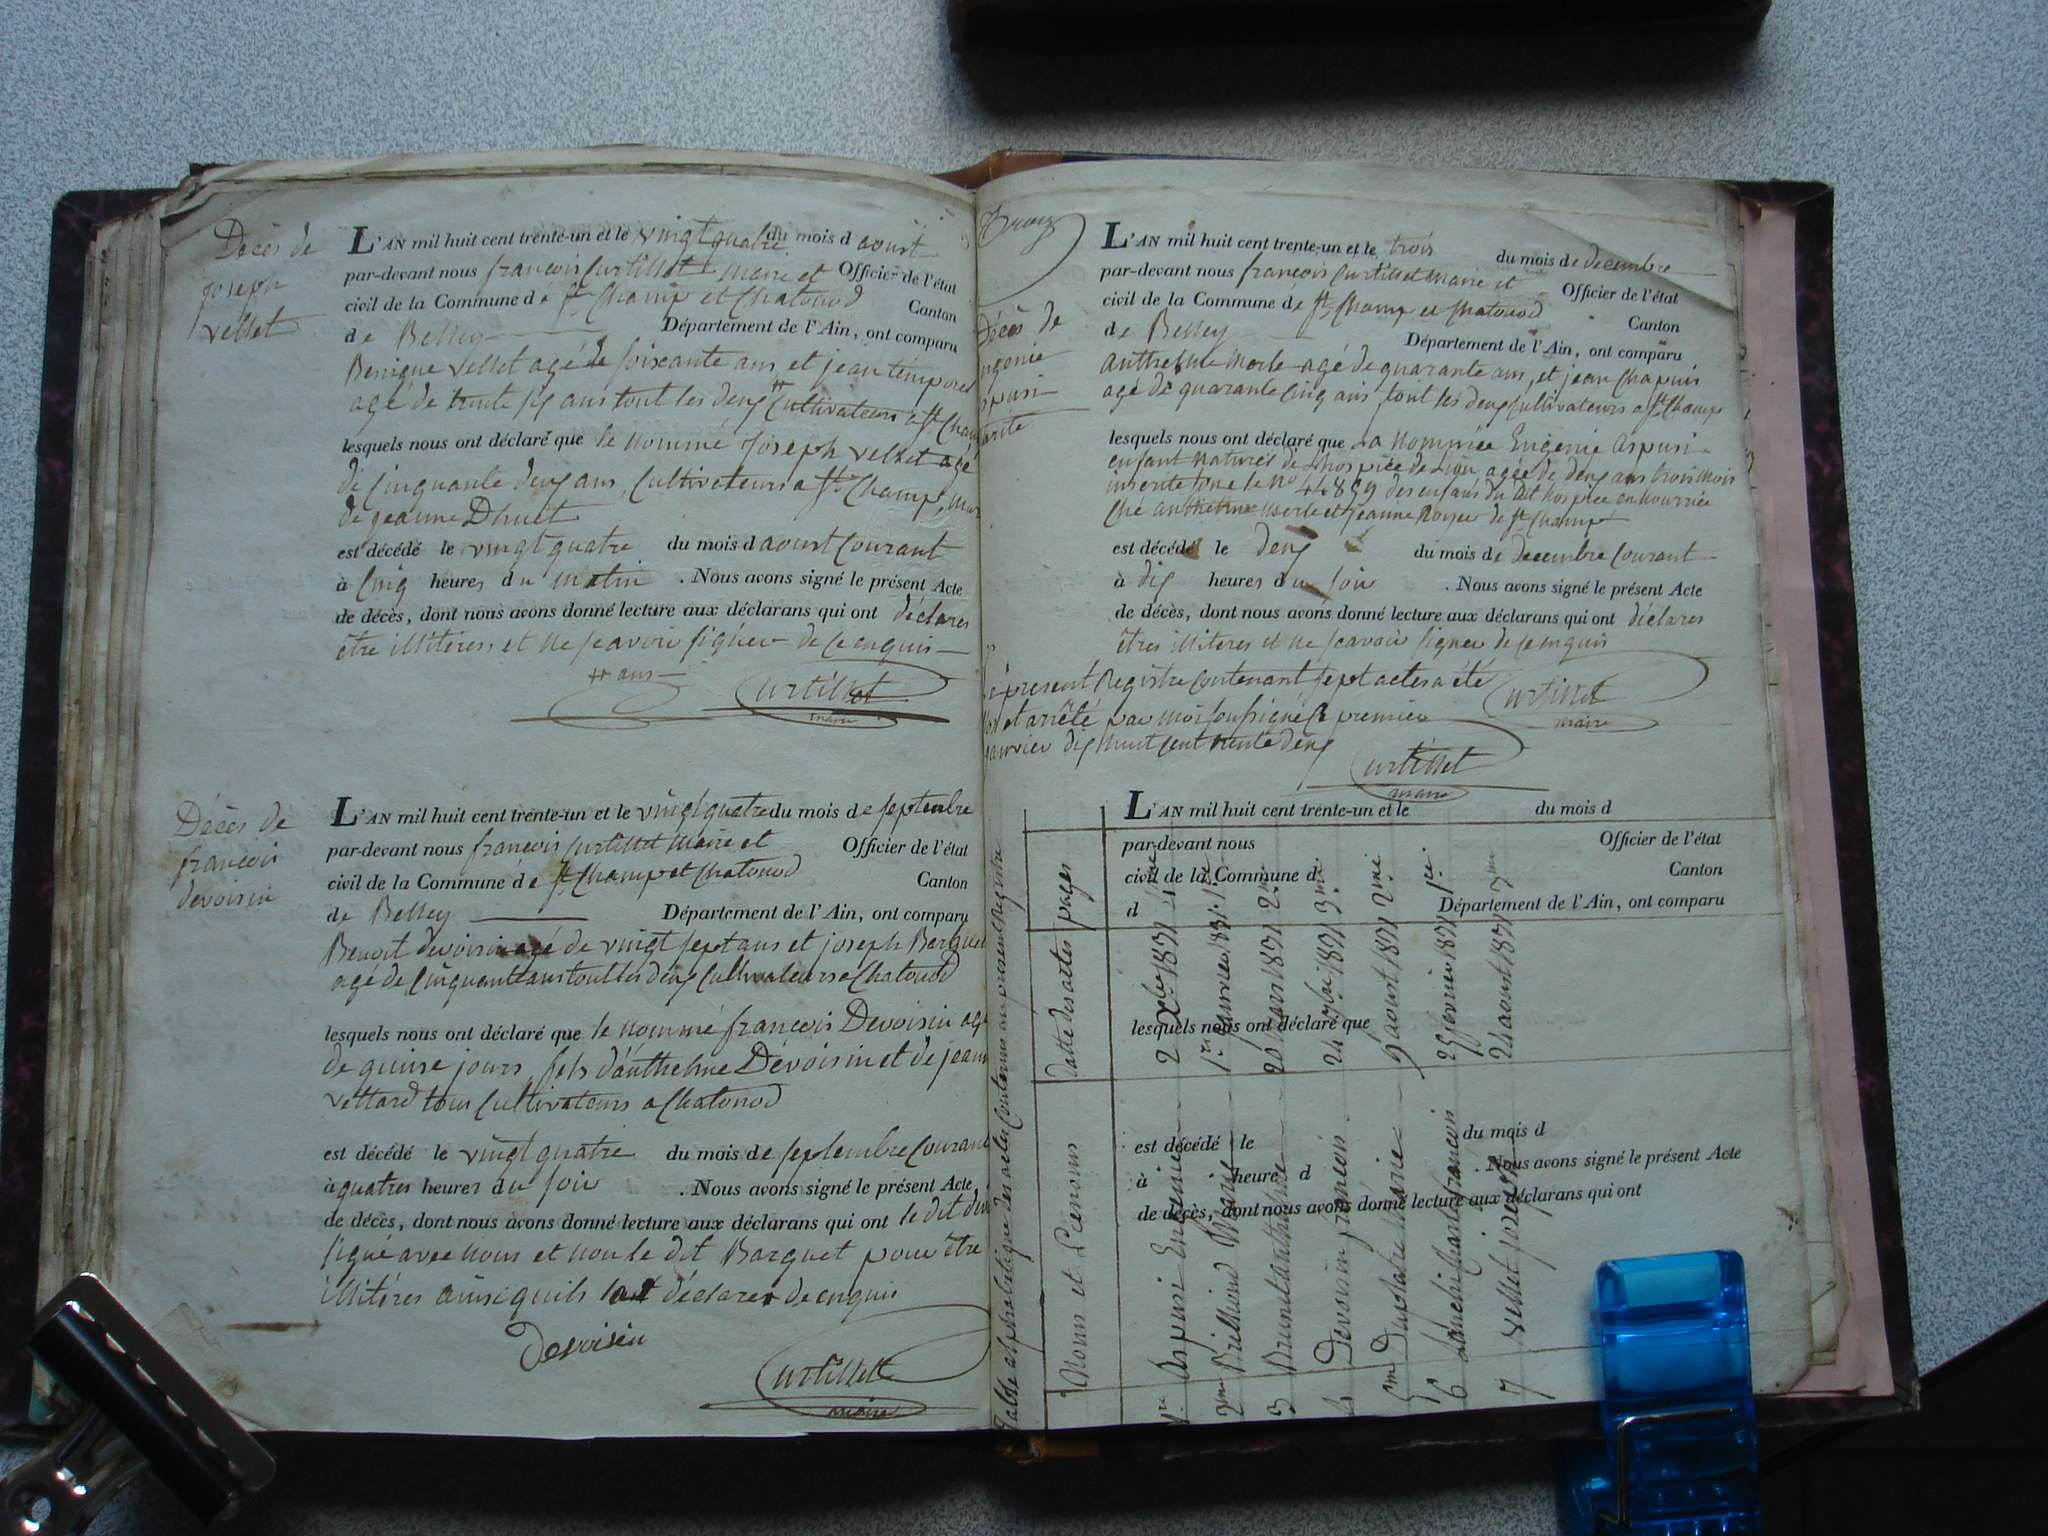 Décès de
joseph
vellet
L'AN mil huit cent trente-un et le vingt quatre du mois d aoust
par-devant nous françois Curtillet maire et Officier de l'état
civil de la Commune de St Champ et Chatonod Canton
de Belley Département de l'Ain, ont comparu
Benigne vellet agé de soixante ans et jean
agé de trente six ans tout les deux Cultivateurs a St Champ
lesquels nous ont déclaré que le nommé joseph vellet agé
de Cinquante deux ans, Cultivateurs a St Champ,
de jeanne Dhuet
est décédé le vingt quatre du mois d aoust Courant
à Cinq heures du matin . Nous avons signé le présent Acte
de décès, dont nous avons donné lecture aux déclarans qui ont déclarés
être illitéres, et ne scavoir signer de ce enquis
ans
Curtillet
maire
Décès de
françois
devoisin
L'AN mil huit cent trente-un et le vingt quatre du mois de septembre
par-devant nous françois Curtillet maire et Officier de l'état
civil de la Commune de St Champ et Chatonod Canton
de Belley Département de l'Ain, ont comparu
Benoit devoisin agé de vingt sept ans et joseph Barquet
agé de Cinquante ans tout les deux Cultivateurs a Chatonod
lesquels nous ont déclaré que le nommé françois Devoisin agé
de quinse jours, fils d'anthelme Dévoisin et de jeanne
vettard tous Cultivateurs a Chatonod
est décédé le vingt quatre du mois de septembre Courant
à quatres heures du soir . Nous avons signé le présent Acte
de décès, dont nous avons donné lecture aux déclarans qui ont le dit
signé avec nous et non le dit Barquet pour être
illitéres ainsi quils déclarer de enquis
Devoisin
Curtillet
maire
Décès de
L'AN mil huit cent trente-un et le trois du mois de decembre
par-devant nous françois Curtillet maire et Officier de l'état
civil de la Commune de St Champ et Chatonod Canton
de Belley Département de l'Ain, ont comparu
anthelme Merle agé de quarante ans, et jean Chapuis
agé de quarante Cinq ans tout les deux Cultivateurs a St Champ
lesquels nous ont déclaré que la nommée Eugénie Aspusi
enfant naturel de l'hospice de Lion agée de deux ans trois mois
inscrite sous le No 44859 des enfans du dit hospice en nourrice
Ché anthelme Merle et jeanne Royer de St Champ
est décédé le deux du mois de decembre Courant
à dix heures du soir . Nous avons signé le présent Acte
de décès, dont nous avons donné lecture aux déclarans qui ont déclarés
êtres illitéres et ne scavoir signer de ce enquis
present Registre Contenant sept actes a été
et arrêté par moi soussigné le premier
janvier dix huit cent trente deux
Curtillet
maire
Curtillet
maire
L'AN mil huit cent trente-un et le du mois d
par-devant nous Officier de l'état
civil de la Commune d Canton
d Département de l'Ain, ont comparu
lesquels nous ont déclaré que
est décédé le du mois d
à heures d . Nous avons signé le présent Acte
de décès, dont nous avons donné lecture aux déclarans qui ont
Table alphabetique des actes Contenus au present Registre
Noms et Prenoms datte des actes pages
1re Aspusi Eugenie 2 Xbre 1831
2me Brilliand Marie 1er janvier 1831 1re
3 Brunet anthelme 20 1831 2me
4 Devoisin françois 24 7bre 1831 3me
5me Duplatre Marie 9 aoust 1831 2me
6 françois 25 fevrier 1831 1re
7 vellet joseph 24 aoust 1831 3me